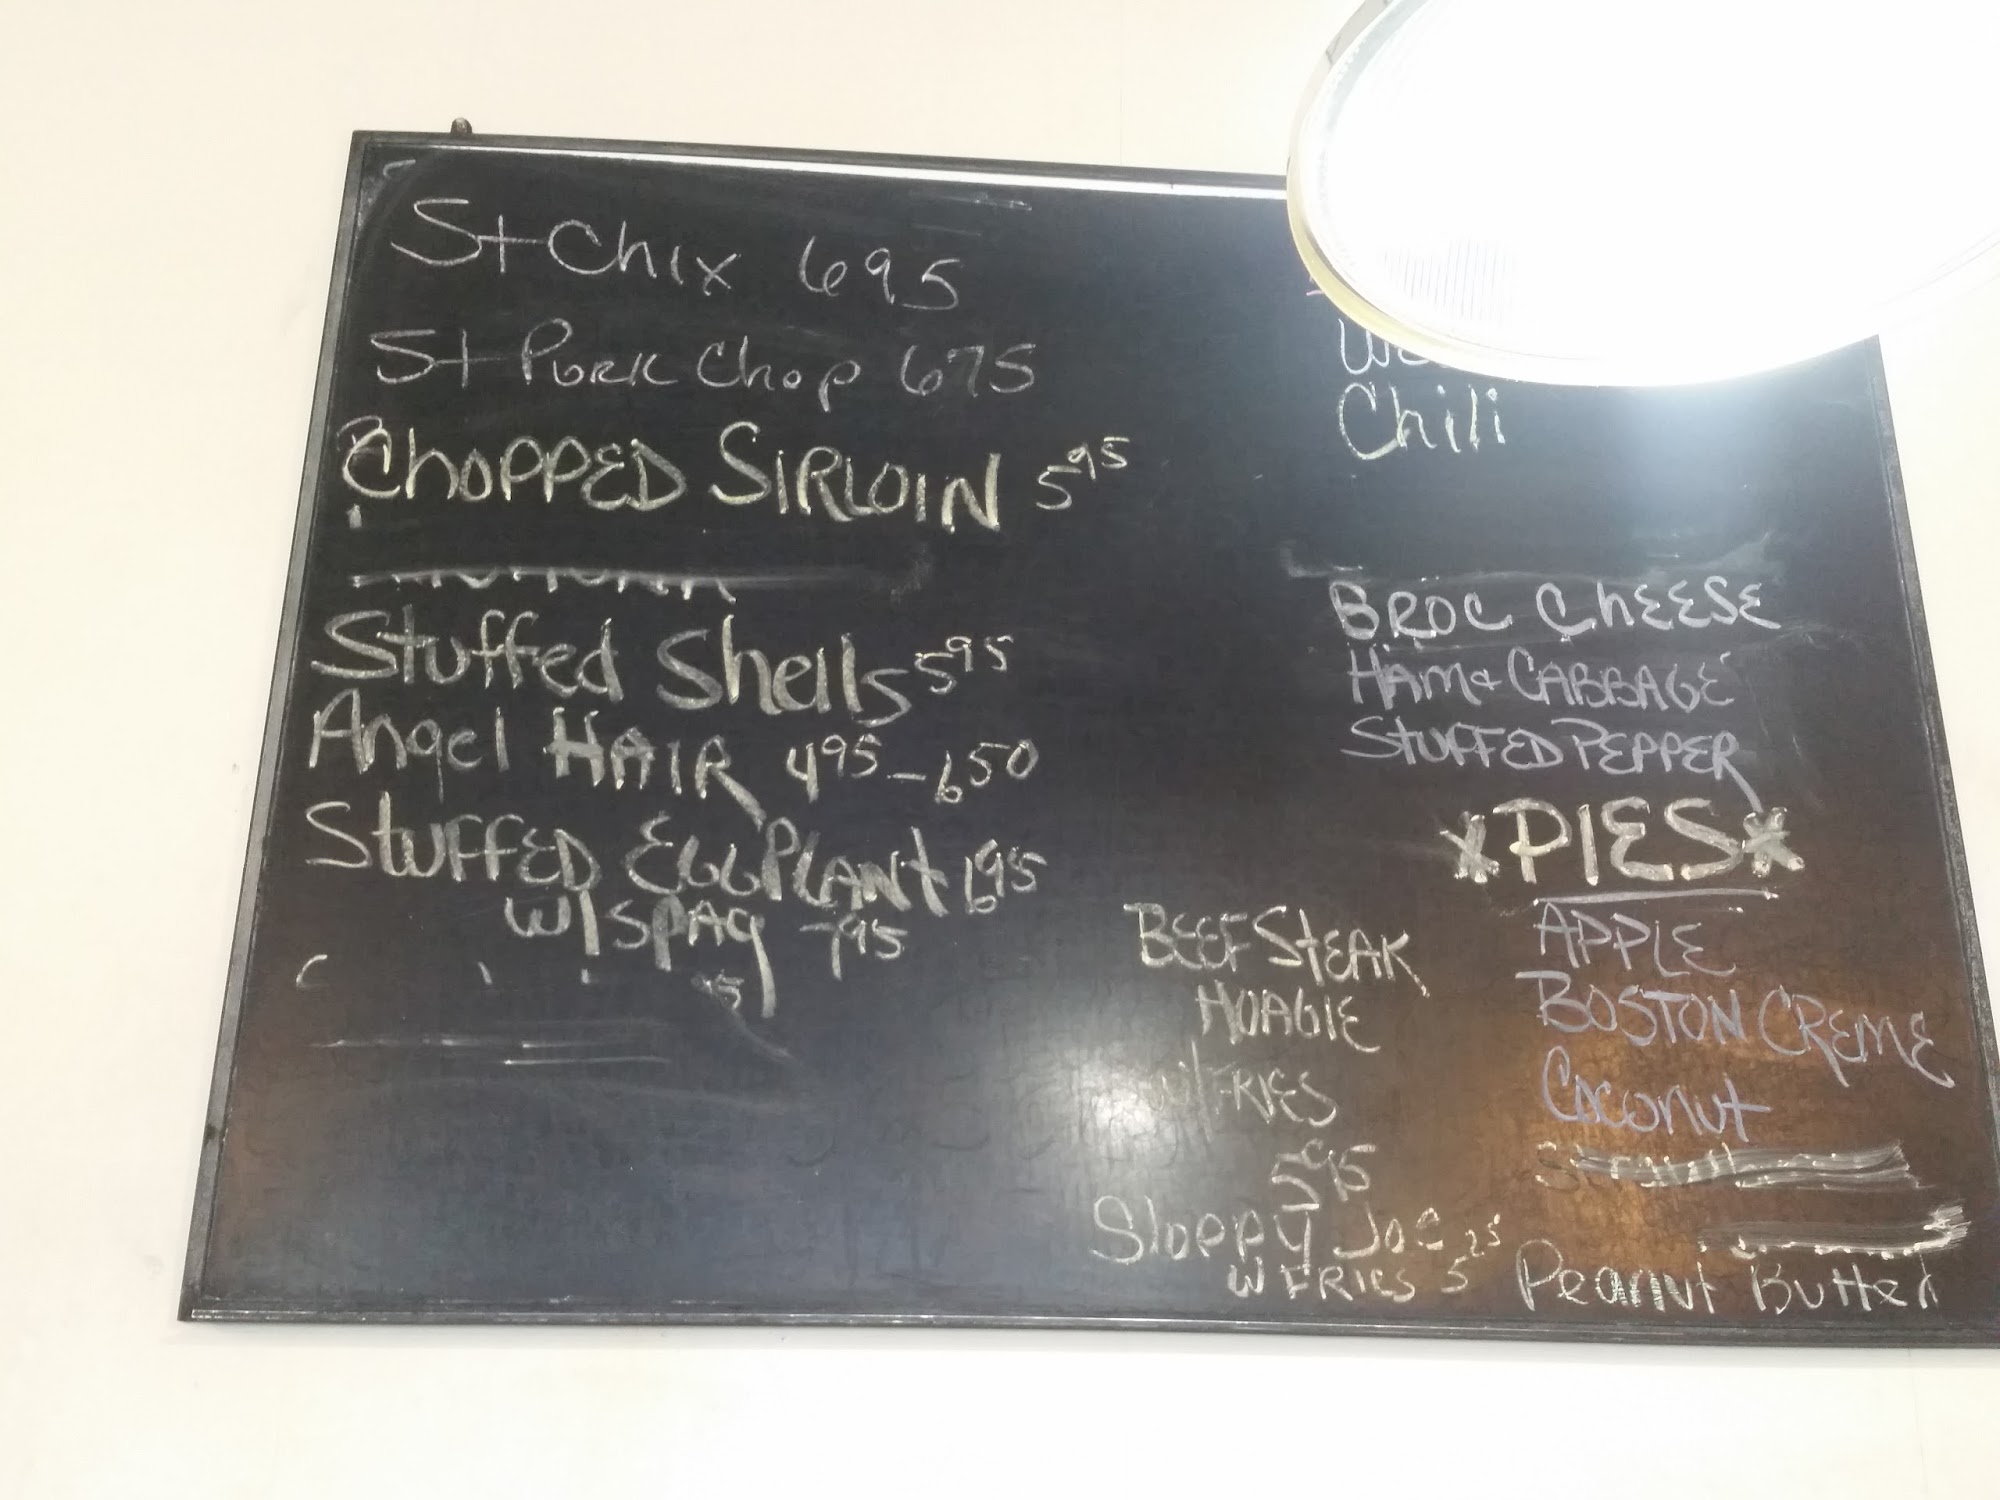 St Chix 695
St Pork Chop 675
Chopped SIRLOIN 5 95
Stuffed Shells 5 95
Angel HAIR 4 95 - 6 50
STUFFED EGGPLANT 6 95
W/ SPAG 7 95
Chili
BROC CHEESE
HAM & CABBAGE
STUFFED PEPPER
*PIES*
APPLE
BOSTON CREME
COCONUT
Peanut Butter
BEEF STEAK
HOAGIE
W/ FRIES
5 95
Sloppy Joe
W FRIES 5 25